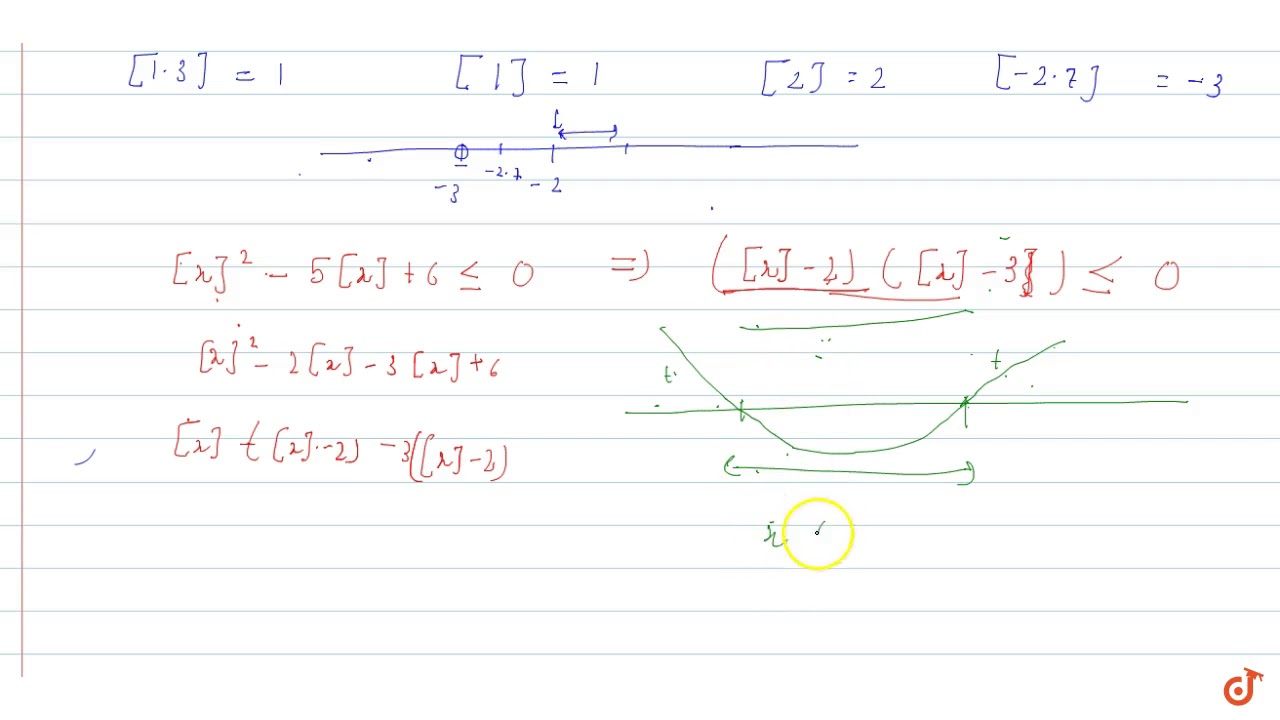 [1.3] = 1 [1] = 1 [2] = 2 [-2.7] = -3
-3 -2.7 -2
[x]² - 5[x] + 6 ≤ 0 => ([x] - 2) ([x] - 3) ≤ 0
[x]² - 2[x] - 3[x] + 6
[x] ([x] - 2) - 3([x] - 2)
+ +
-
x